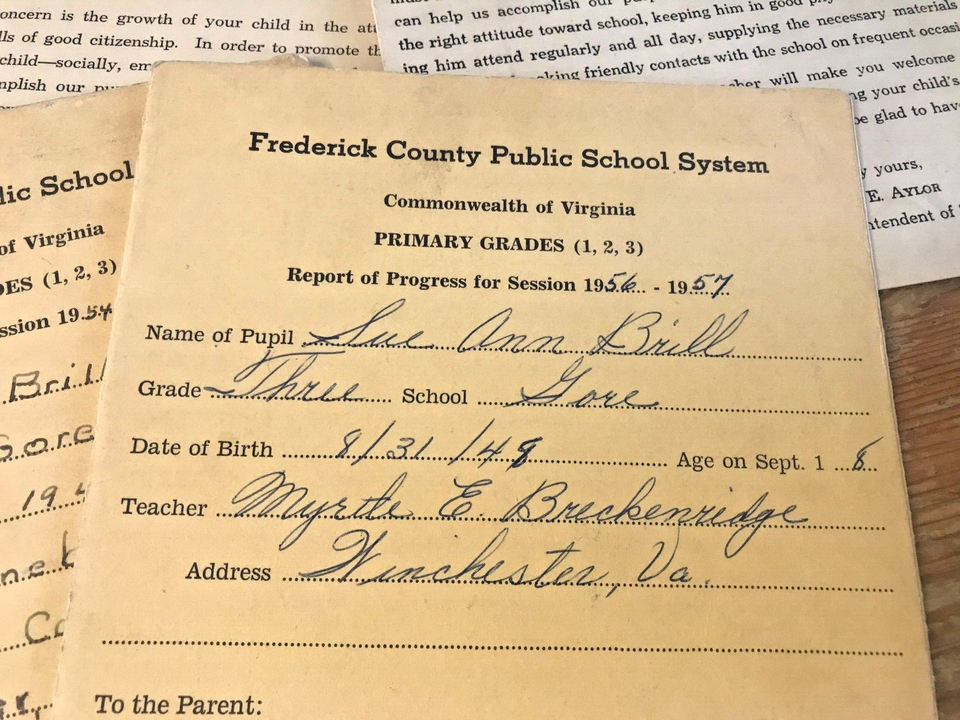 oncern is the growth of your child in the
lls of good citizenship. In order to promote
child—socially,
mplish our
can help us accomplish our
the right attitude toward school, keeping him in good
ing him attend regularly and all day, supplying the necessary materials
king friendly contacts with the school on frequent
cher will make you welcome
ng your child's
be glad to have
yours,
E. AYLOR
ntendent of
lic School
of Virginia
DES (1, 2, 3)
ssion 19.54
Brill
Gore
19
Frederick County Public School System
Commonwealth of Virginia
PRIMARY GRADES (1, 2, 3)
Report of Progress for Session 1956 - 1957
Name of Pupil Sue Ann Brill
Grade Three School Gore
Date of Birth 8/31/48 Age on Sept. 1 8
Teacher Myrtle E. Breckenridge
Address Winchester, Va.
To the Parent: